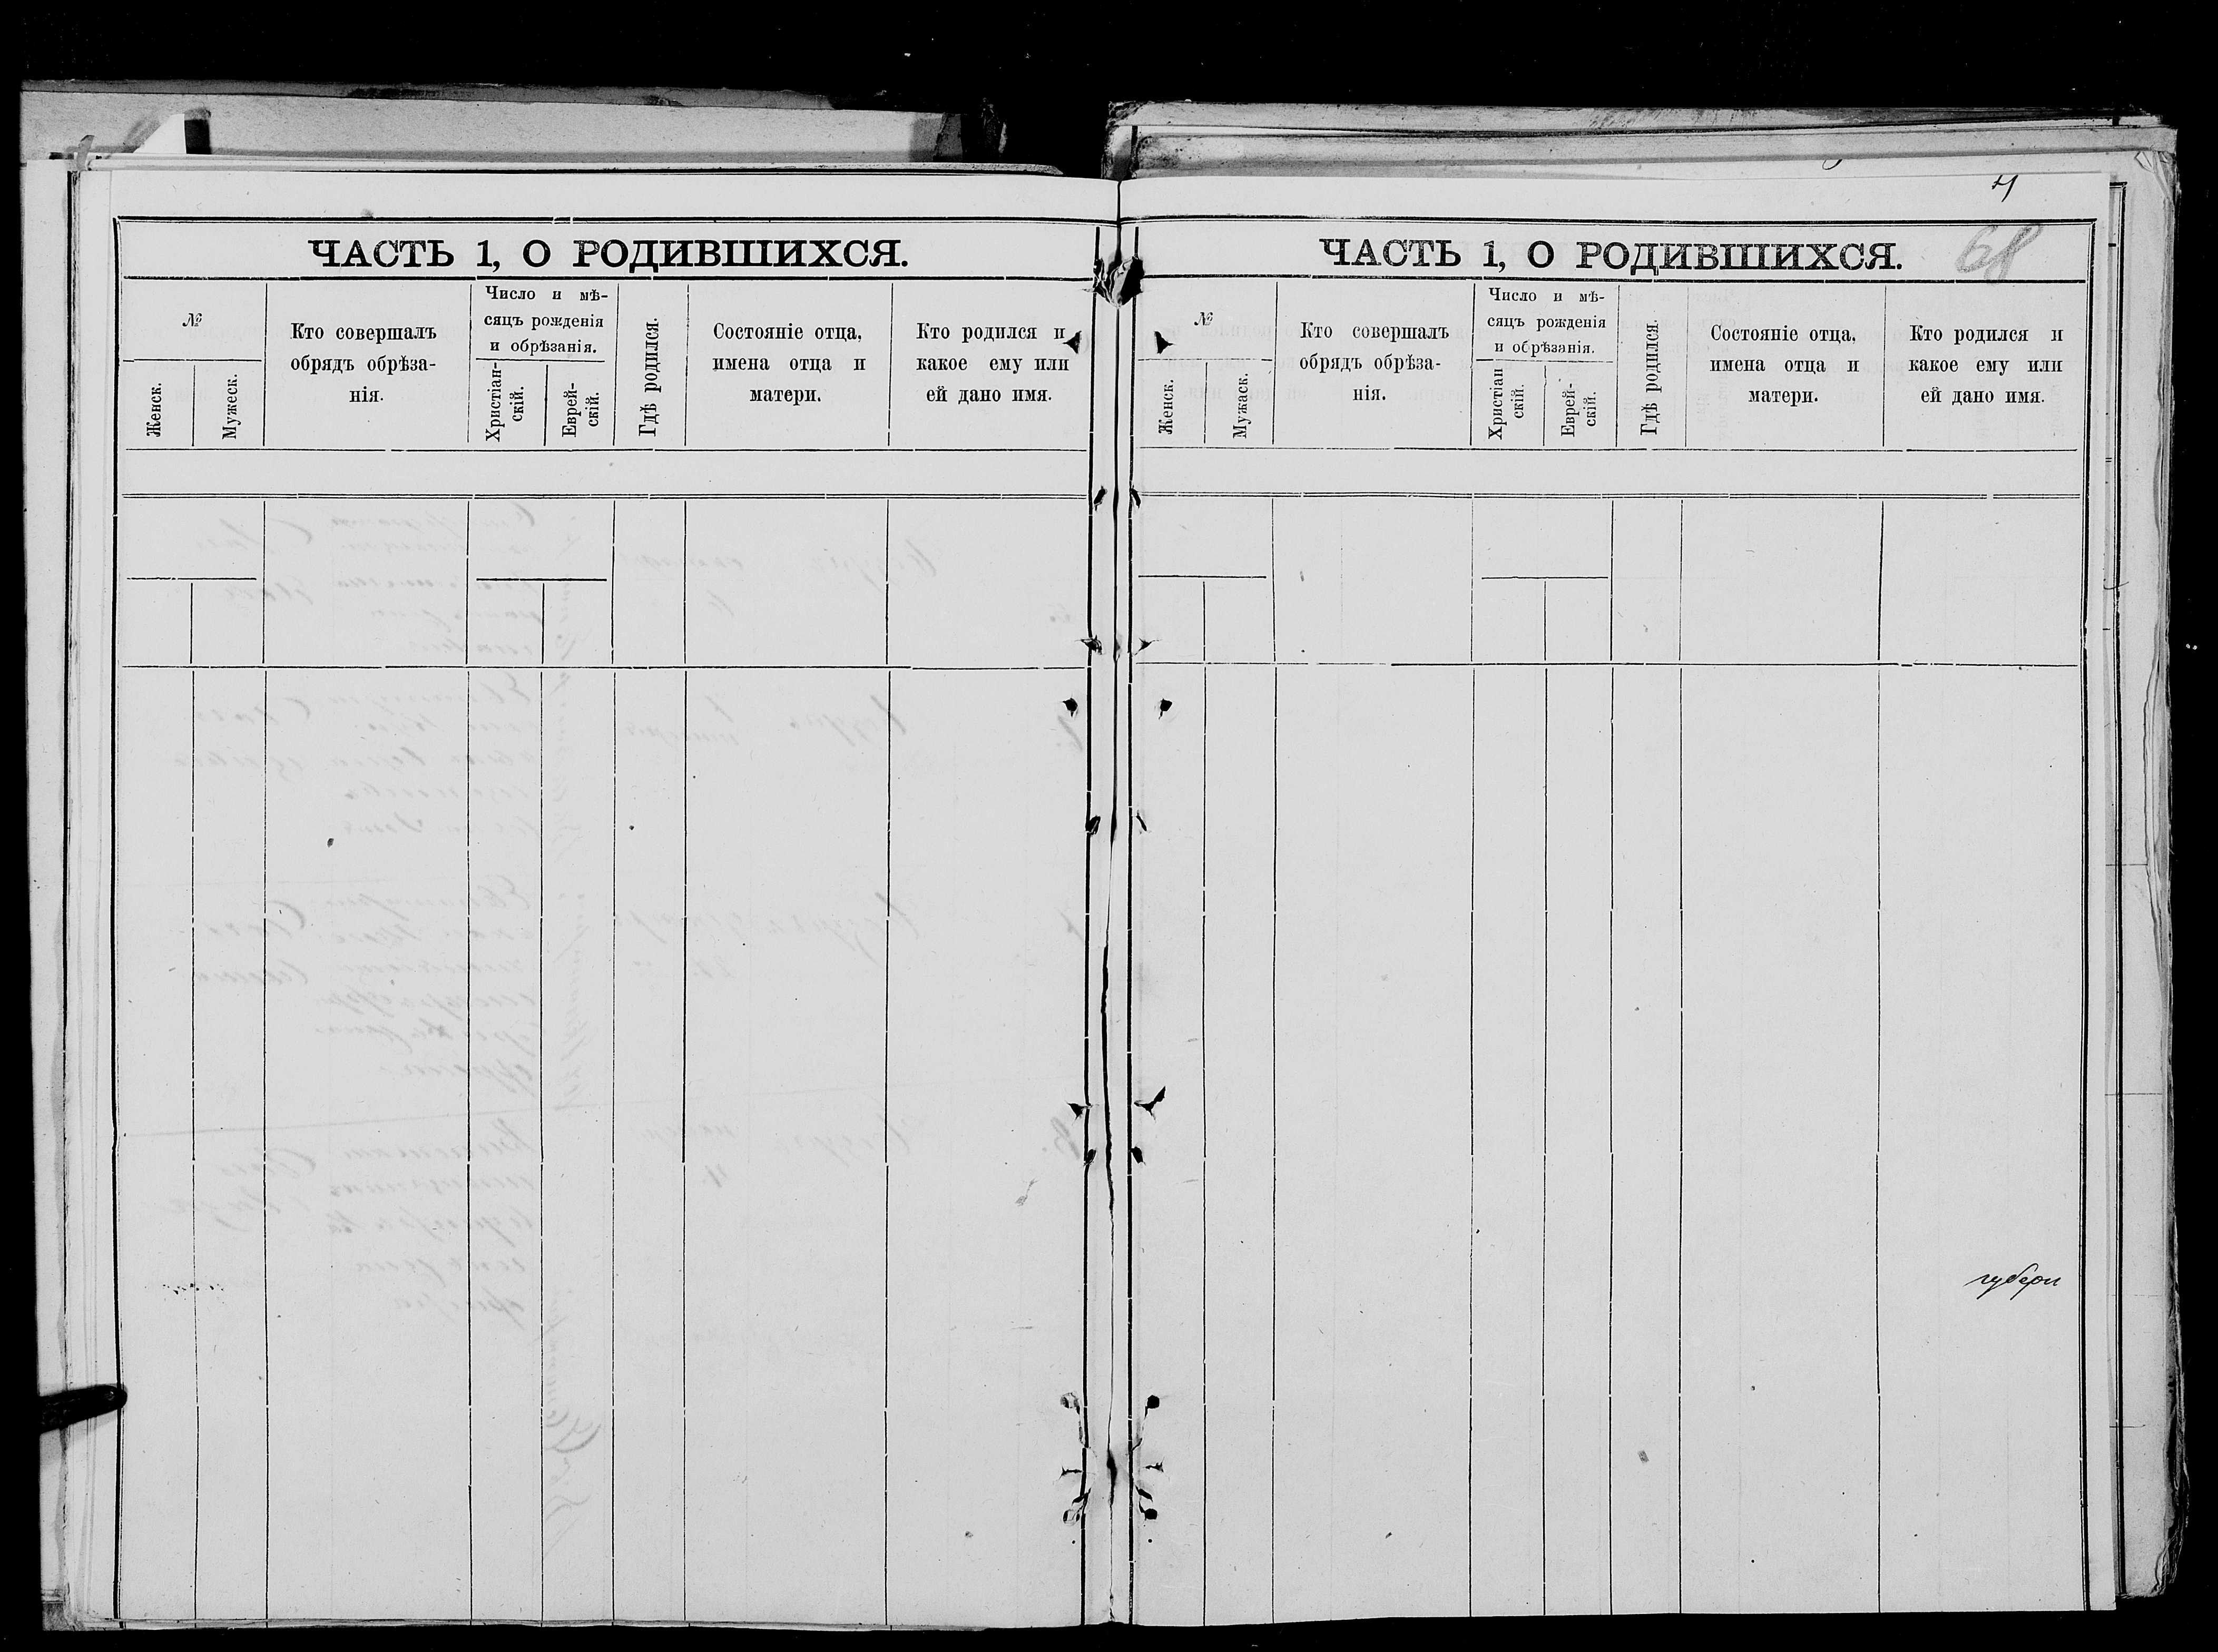 ЧАСТЬ 1, О РОДИВШИХСЯ.
№
Женск.
Мужеск.
Кто совершалъ
обрядъ обрѣза-
нія.
Число и мѣ-
сяцъ рожденія
и обрѣзанія.
Христіан-
скій.
Еврей-
скій.
Гдѣ родился.
Состояніе отца,
имена отца и
матери.
Кто родился и
какое ему или
ей дано имя.
68
ЧАСТЬ 1, О РОДИВШИХСЯ.
№
Женск.
Мужаск.
Кто совершалъ
обрядъ обрѣза-
нія.
Число и мѣ-
сяцъ рожденія
и обрѣзанія.
Христіан
скій.
Еврей-
скій.
Гдѣ родился.
Состояніе отца,
имена отца и
матери.
Кто родился и
какое ему или
ей дано имя.
губерн